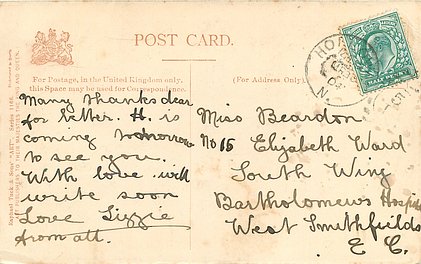 POST CARD.
For Postage, in the United Kingdom only,
this Space may be used for Correspondence.
(For Address Only.)
Many thanks dear
for letter. H. is
coming tomorrow
to see you.
With love will
write soon
Love Lizzie
from all.
Miss Beardon
No 15 Elizabeth Ward
South Wing
Bartholomews Hospital
West Smithfields
E. C.
Raphael Tuck & Sons' "ART" Series 1166.
HO
N.